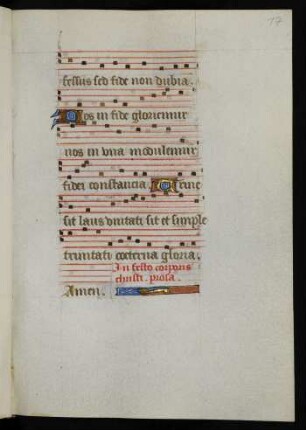 17
fessus sed fide non dubia.
Nos in fide gloriemur
nos in una modulemur
fidei constancia. Trine
sit laus unitati sit et simple
trinitati coeterna gloria.
In festo corporis
christi. prosa.
Amen.